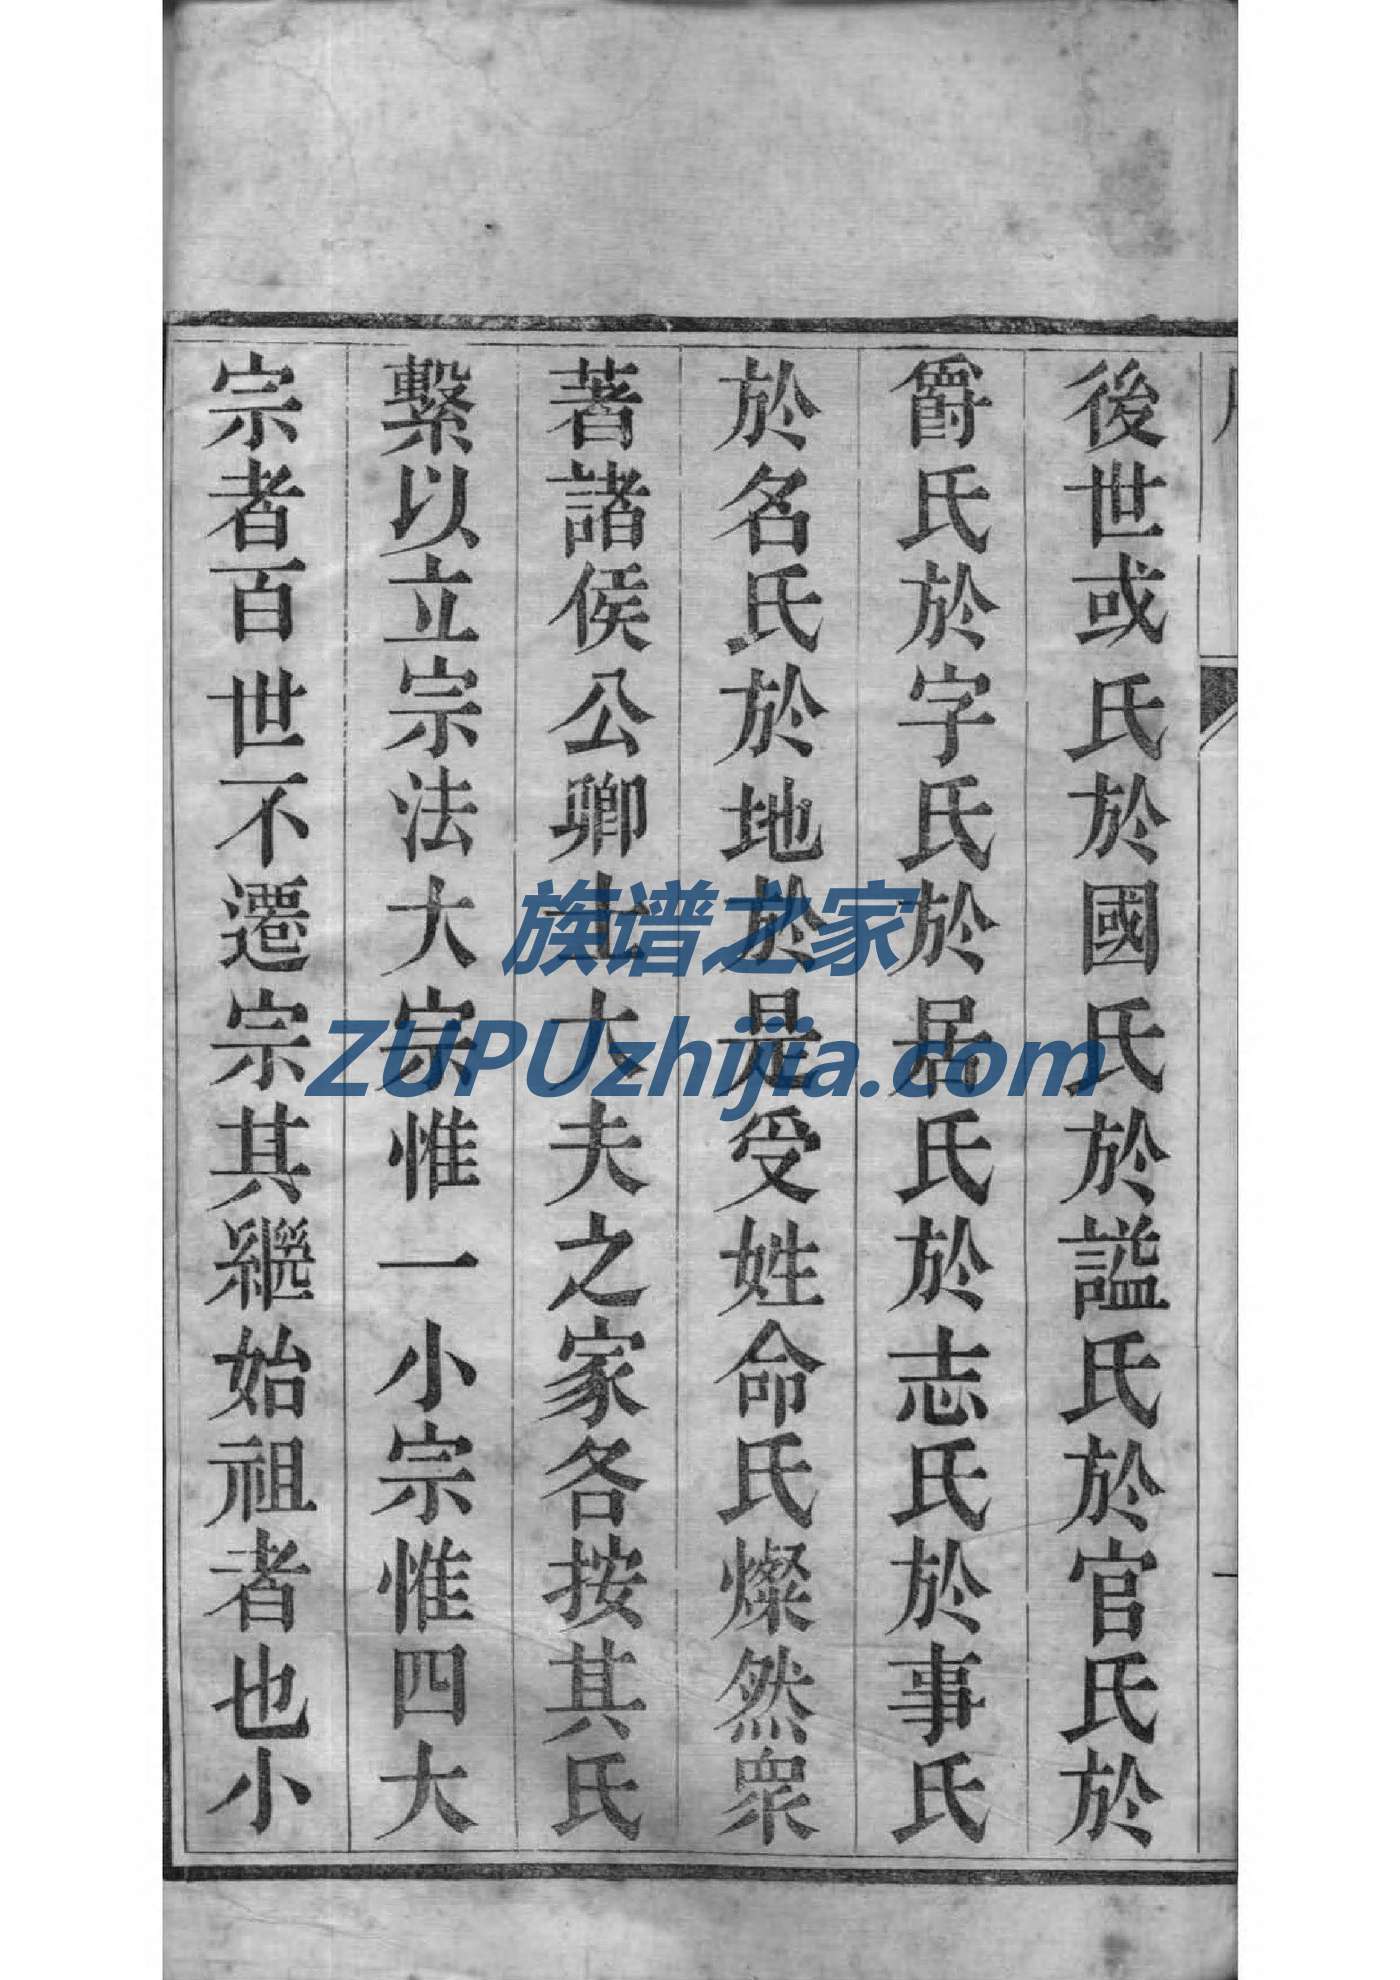 後世或氏於國氏於謚氏於官氏於
爵氏於字氏於居氏於志氏於事氏
於名氏於地於是受姓命氏燦然衆
著諸侯公卿士大夫之家各按其氏
繫以立宗法大宗惟一小宗惟四大
宗者百世不遷宗其繼始祖者也小
族谱之家
ZUPUzhijia.com